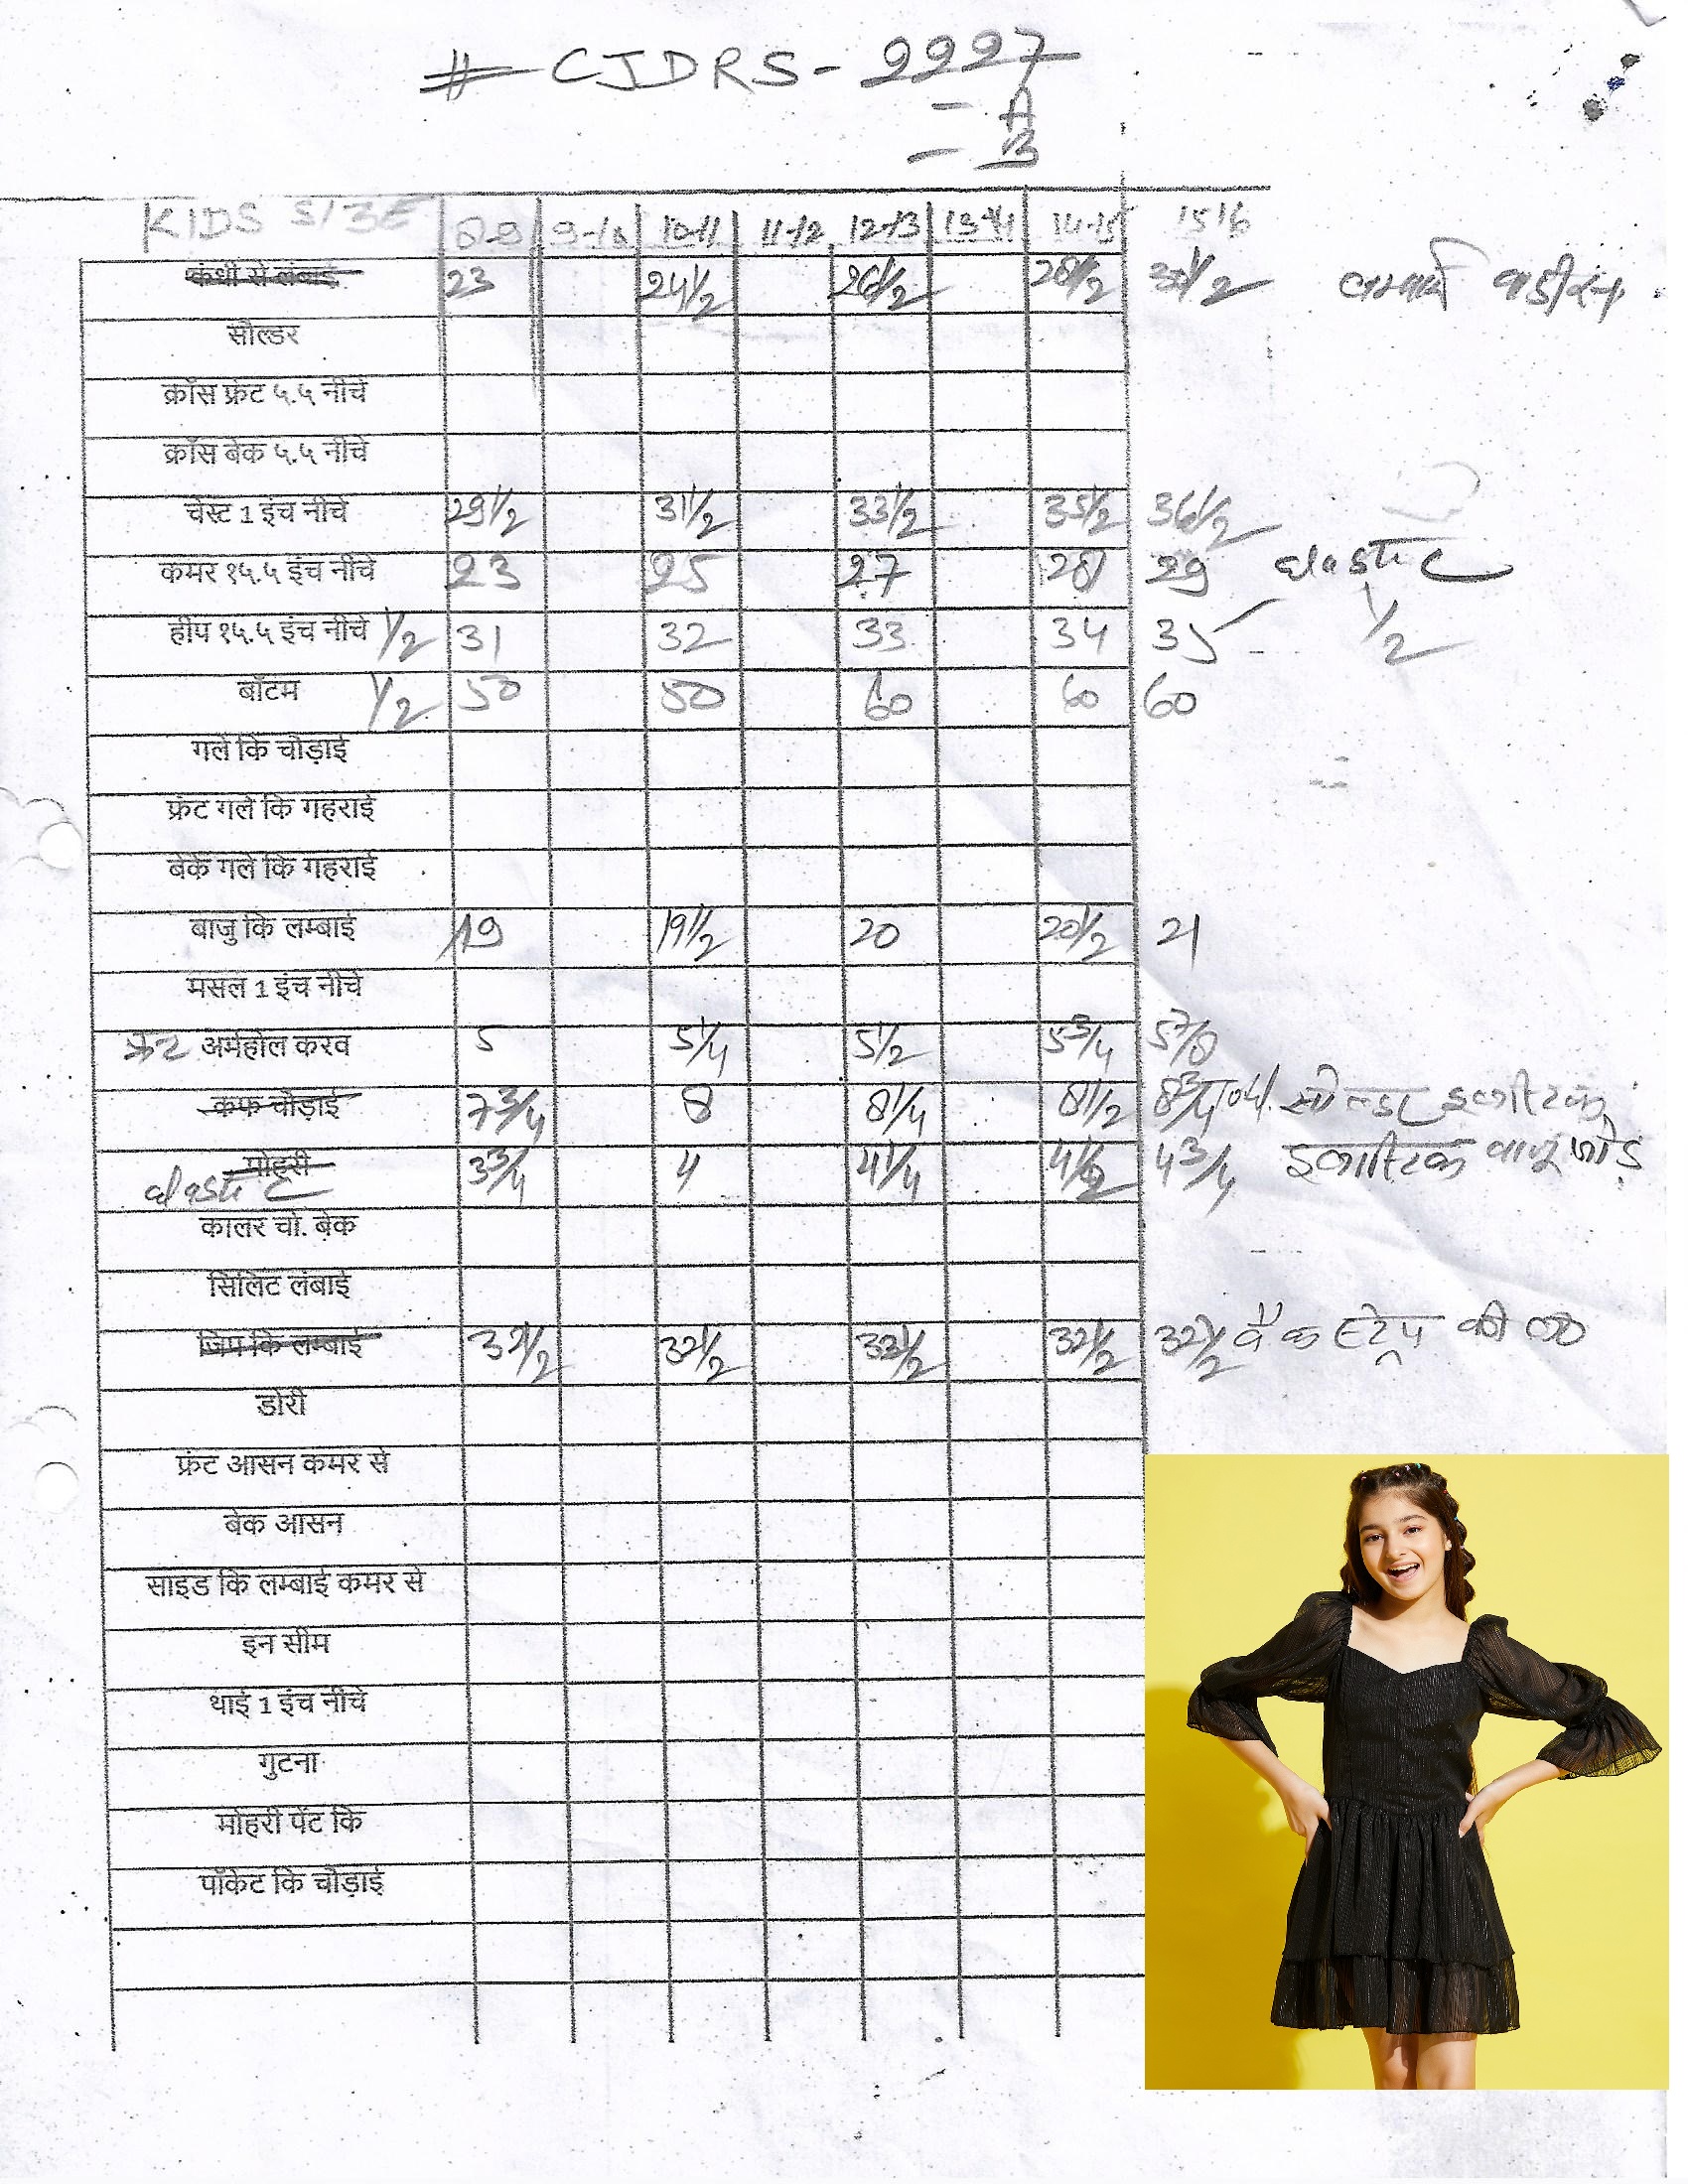 # CJDRS - 2227
- A
- B
KIDS SIZE 8-9 9-10 10-11 11-12 12-13 13-14 14-15 15 16
कंधी से लंबाई 23 24 1/2 26 1/2 28 1/2 30 1/2
सौल्डर
क्रॉस फ्रंट ५.५ नीचे
क्रॉस बेक ५.५ नीचे
चेस्ट 1 इंच नीचे 29 1/2 31 1/2 33 1/2 35 1/2 36 1/2
कमर १५.५ इंच नीचे 23 25 27 28 29 elastic
हीप १५.५ इंच नीचे 1/2 31 32 33 34 35 1/2
बॉटम 1/2 50 50 60 60 60
गले कि चौड़ाई
फ्रंट गले कि गहराई
बेके गले कि गहराई
बाजु कि लम्बाई 19 19 1/2 20 20 1/2 21
मसल 1 इंच नीचे
अर्महोल करव 5 5 1/4 5 1/2 5 3/4 5 7/8
कफ चौड़ाई 7 3/4 8 8 1/4 8 1/2 8 3/4 सोल्डर इलास्टिक
मोहरी elastic 3 3/4 4 4 1/4 4 1/2 4 3/4 इलास्टिक बाजू जोड़
कालर चो. बेक
सिलिट लंबाई
जिप कि लम्बाई 32 1/2 32 1/2 32 1/2 32 1/2 32 1/2 बैक स्ट्रेप की
डोरी
फ्रंट आसन कमर से
बेक आसन
साइड कि लम्बाई कमर से
इन सीम
थाई 1 इंच नीचे
गुटना
मोहरी पेंट कि
पॉकेट कि चौड़ाई